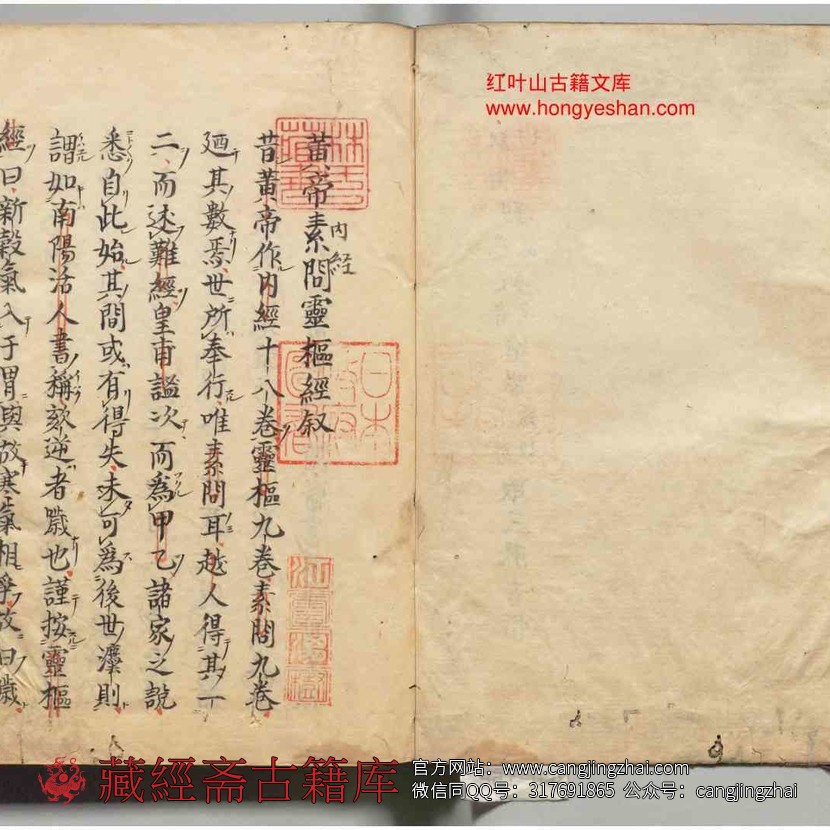 红叶山古籍文库
www.hongyeshan.com
黄帝素問靈樞經叙
内経
昔黄帝作内經十八卷靈樞九卷素問九卷
廼其數焉世所奉行唯素問耳越人得其一
二而述難經皇甫謐次而為甲乙諸家之說
悉自此始其間或有得失未可為後世灋則
謂如南陽活人書稱欬逆者噦也謹按靈樞
經曰新穀氣入于胃與故寒氣相爭故曰噦
日本
藏經斋古籍库
官方网站：www.cangjingzhai.com
微信同QQ号：317691865 公众号：cangjingzhai